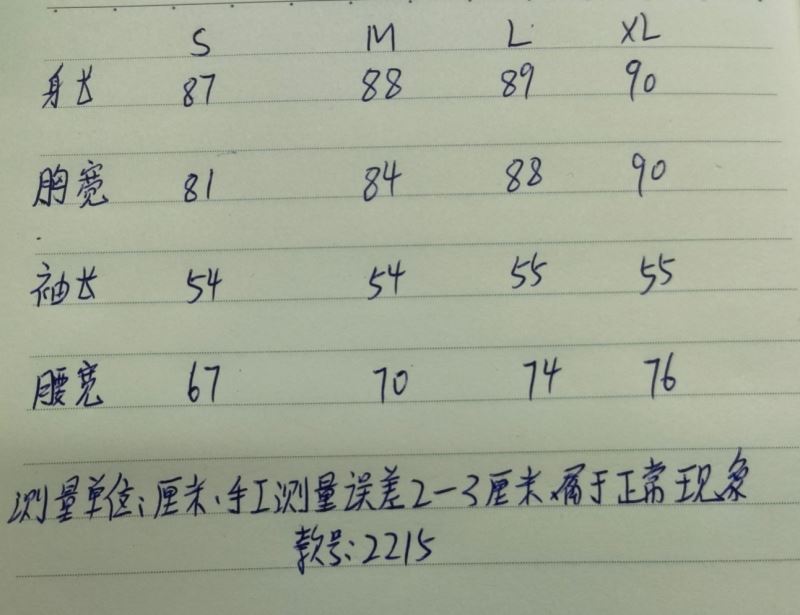 S M L XL
身长 87 88 89 90
胸宽 81 84 88 90
袖长 54 54 55 55
腰宽 67 70 74 76
测量单位:厘米,手工测量误差2-3厘米,属于正常现象
款号:2215